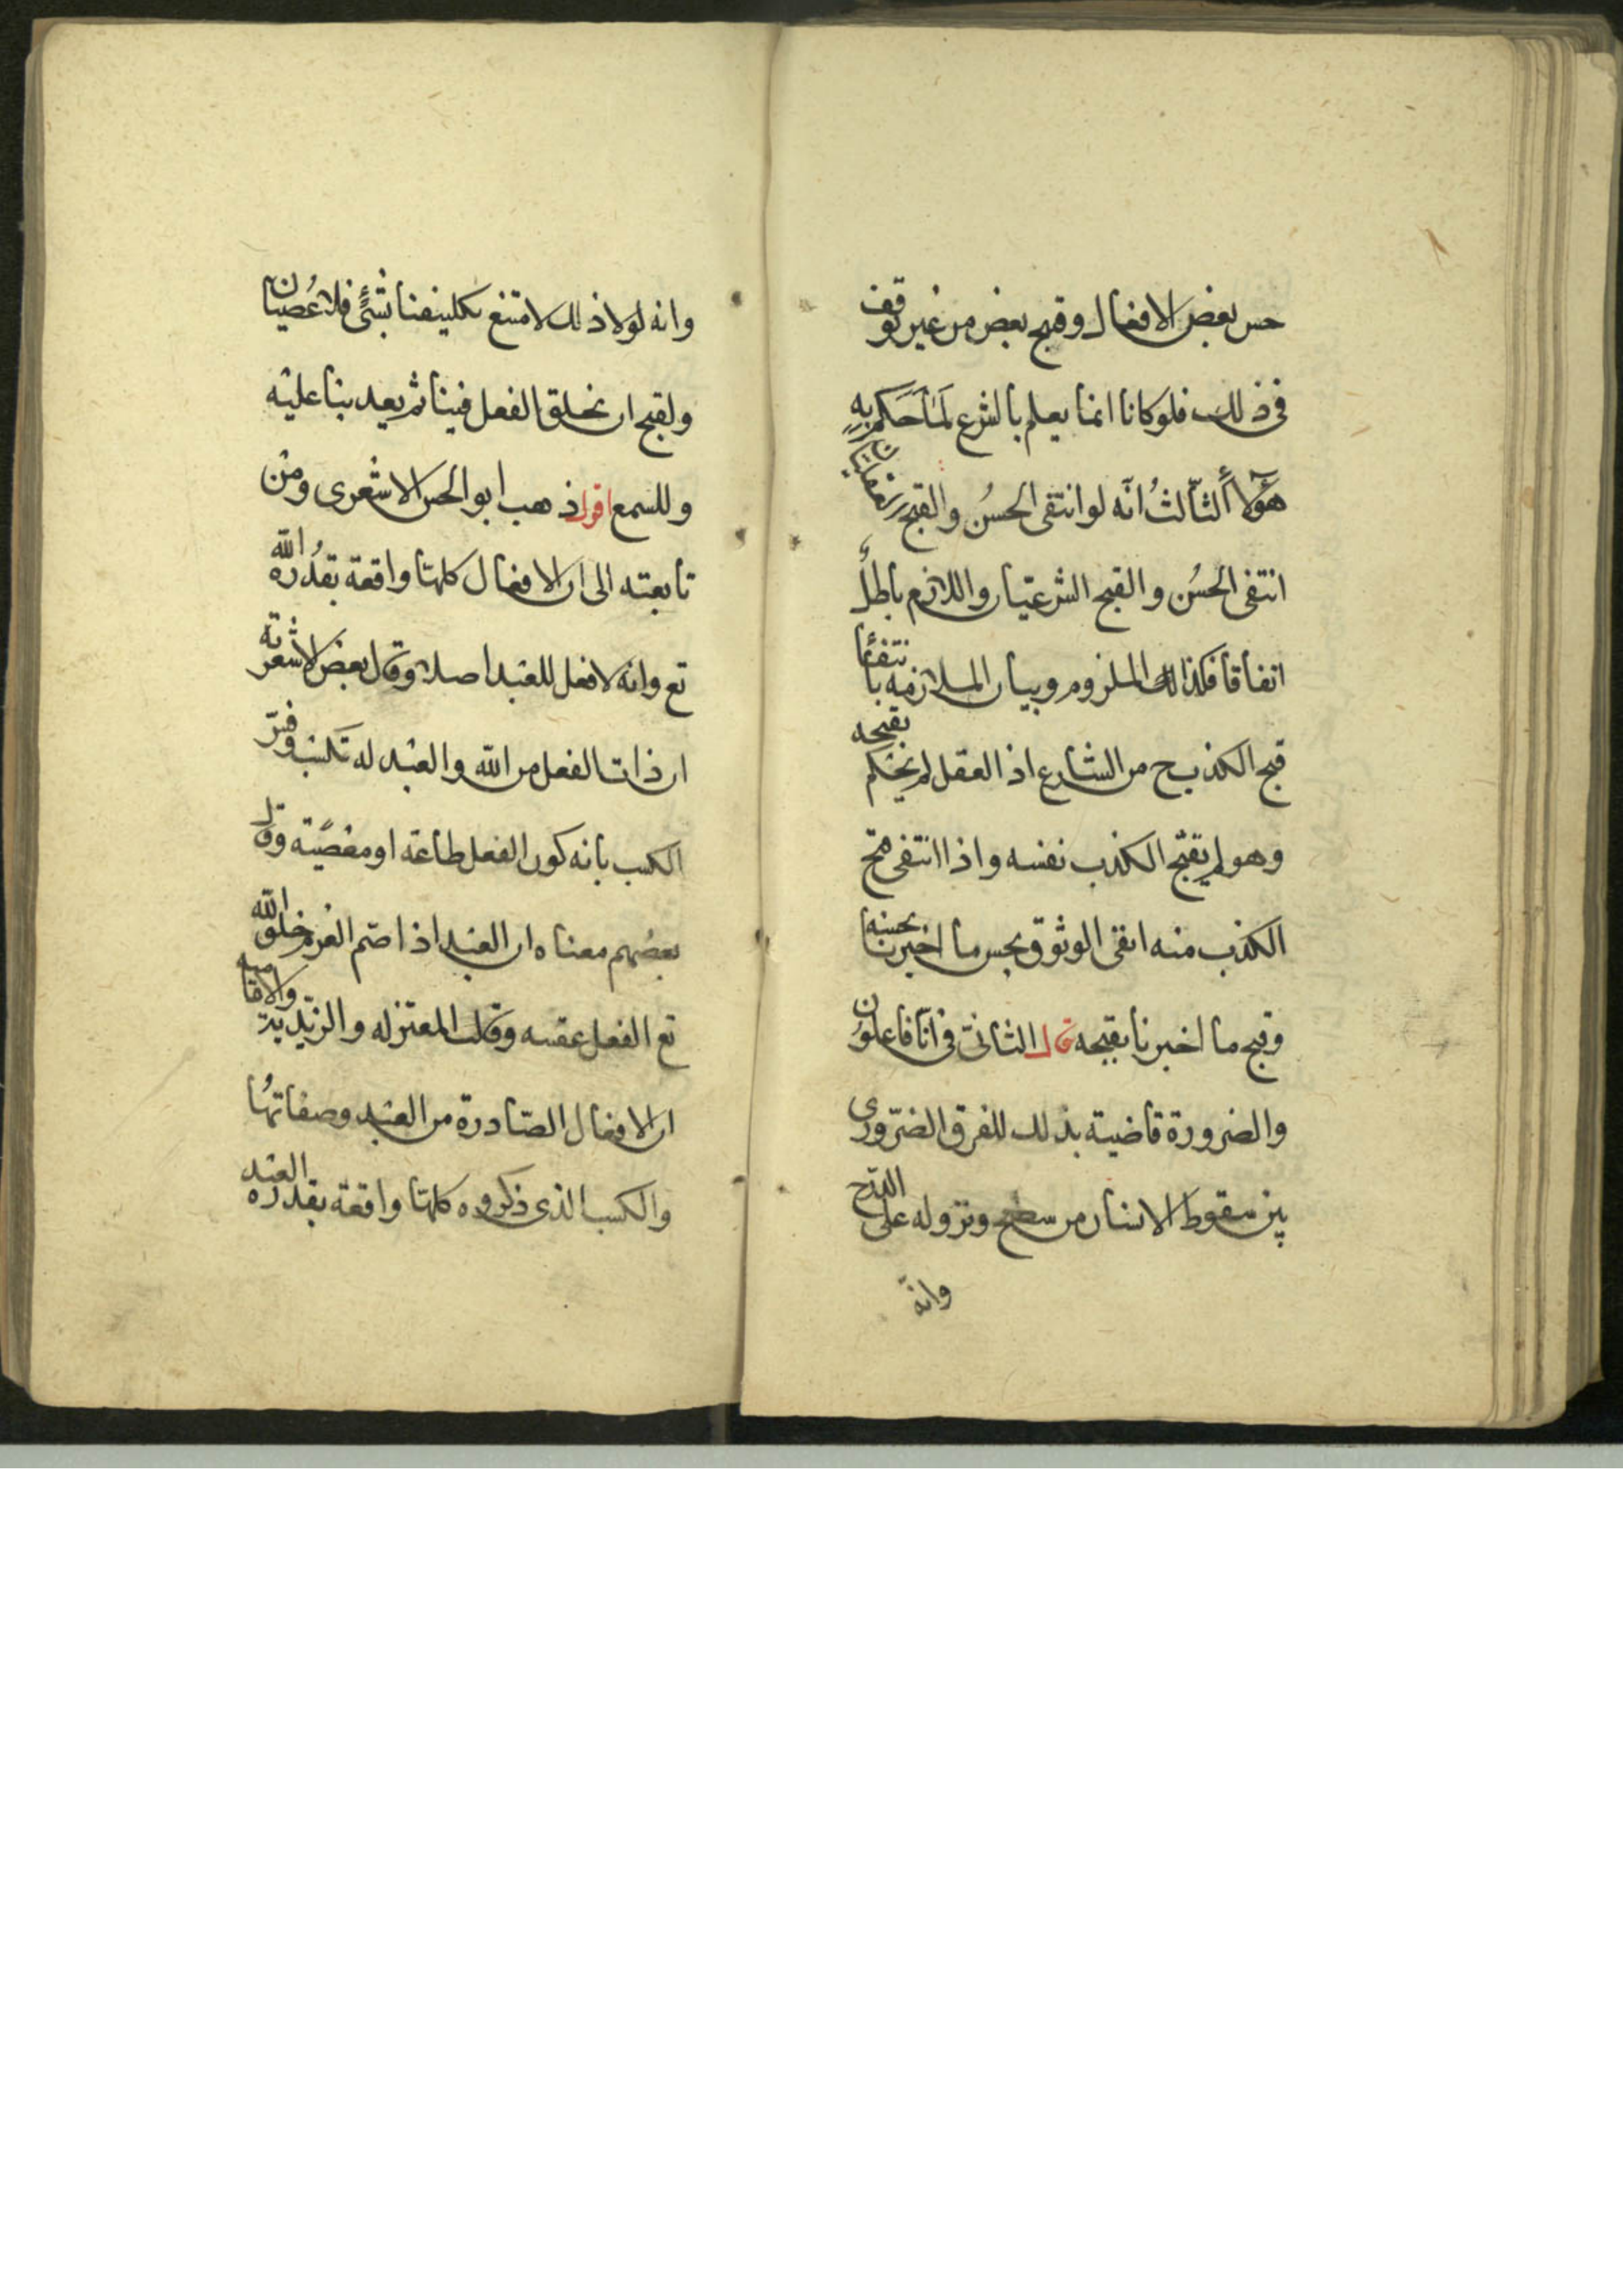 حسن بعض الافعال وقبح بعض من غير توقف
فى ذلك فلو كانا انما يعلم بالشرع لما حكم به
هؤلاء الثالث انه لو انتفى الحسن والقبح العقليان
انتفى الحسن والقبح الشرعيان واللازم باطل
اتفاقا فكذا الملزوم وبيان الملازمه بانتفاء
قبح الكذب ح من الشارع اذ العقل لم يحكم بقبحه
وهو لم يقبح الكذب نفسه واذا انتفى قبح
الكذب منه انتفى الوثوق بحسن ما اخبرنا بحسنه
وقبح ما اخبرنا بقبحه قال الثانى فى انا فاعلون
والضرورة قاضية بذلك للفرق الضرورى
بين سقوط الانسان من سطح ونزوله على الدرج
وانه
وانه لولا ذلك لامتنع تكليفنا بشئ فلا عصيان
ولقبح ان يخلق الفعل فينا ثم يعذبنا عليه
وللسمع اقول ذهب ابو الحسن الاشعرى ومن
تابعته الى ان الافعال كلها واقعة بقدرة الله
تع وانه لا فعل للعبد اصلا وقال بعض الاشعرية
ان ذات الفعل من الله والعبد له تكسب وفسر
الكسب بانه كون الفعل طاعة او معصية وقال
بعضهم معناه ان العبد اذا صمم العزم خلق الله
تع الفعل عقبه وقالت المعتزله والزيدية والامامية
ان الافعال الصادرة من العبد وصفاتها
والكسب الذى ذكروه كلها واقعة بقدرة العبد